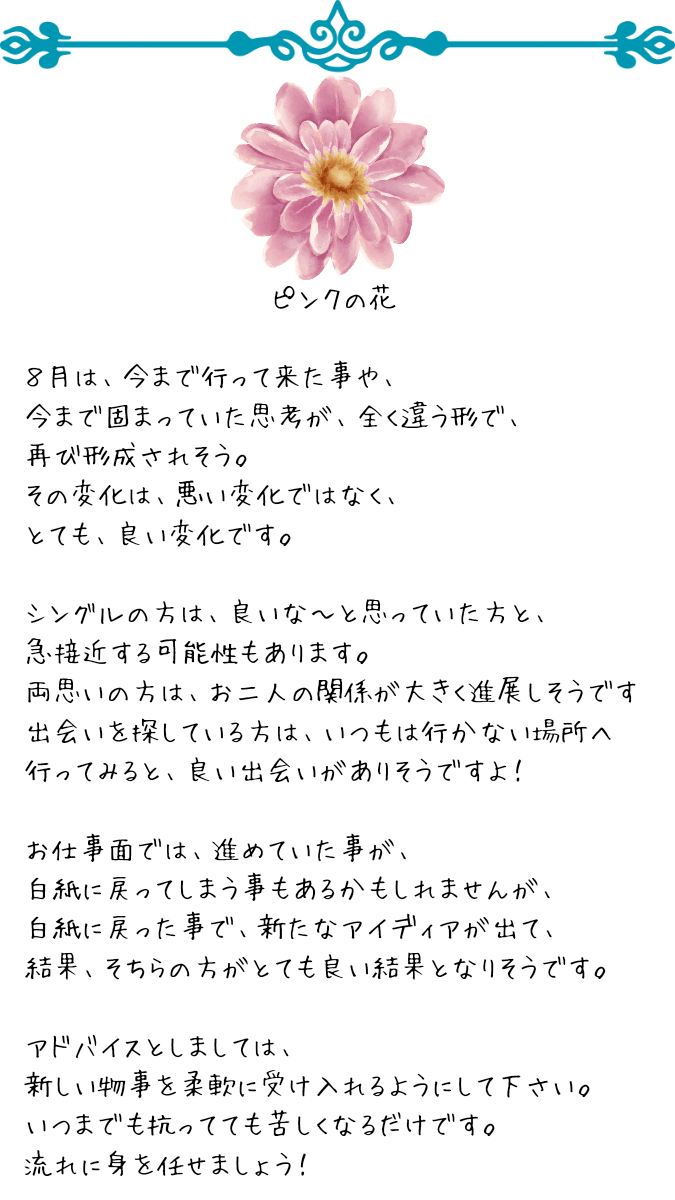 ピンクの花
8月は、今まで行って来た事や、
今まで固まっていた思考が、全く違う形で、
再び形成されそう。
その変化は、悪い変化ではなく、
とても、良い変化です。
シングルの方は、良いな～と思っていた方と、
急接近する可能性もあります。
両思いの方は、お二人の関係が大きく進展しそうです
出会いを探している方は、いつもは行かない場所へ
行ってみると、良い出会いがありそうですよ!
お仕事面では、進めていた事が、
白紙に戻ってしまう事もあるかもしれませんが、
白紙に戻った事で、新たなアイディアが出て、
結果、そちらの方がとても良い結果となりそうです。
アドバイスとしましては、
新しい物事を柔軟に受け入れるようにして下さい。
いつまでも抗ってても苦しくなるだけです。
流れに身を任せましょう!